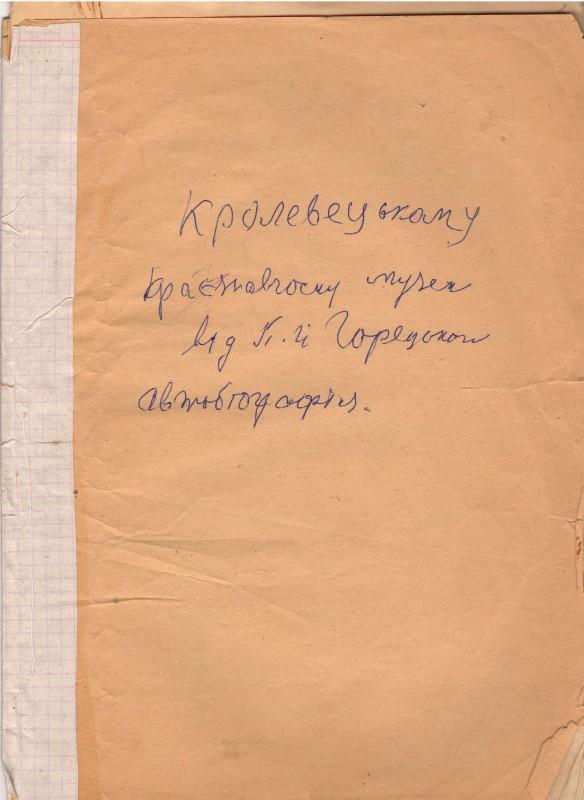 Кролевецькому
краєзнавчому музею
від П. Й Горецького
автобіографія.